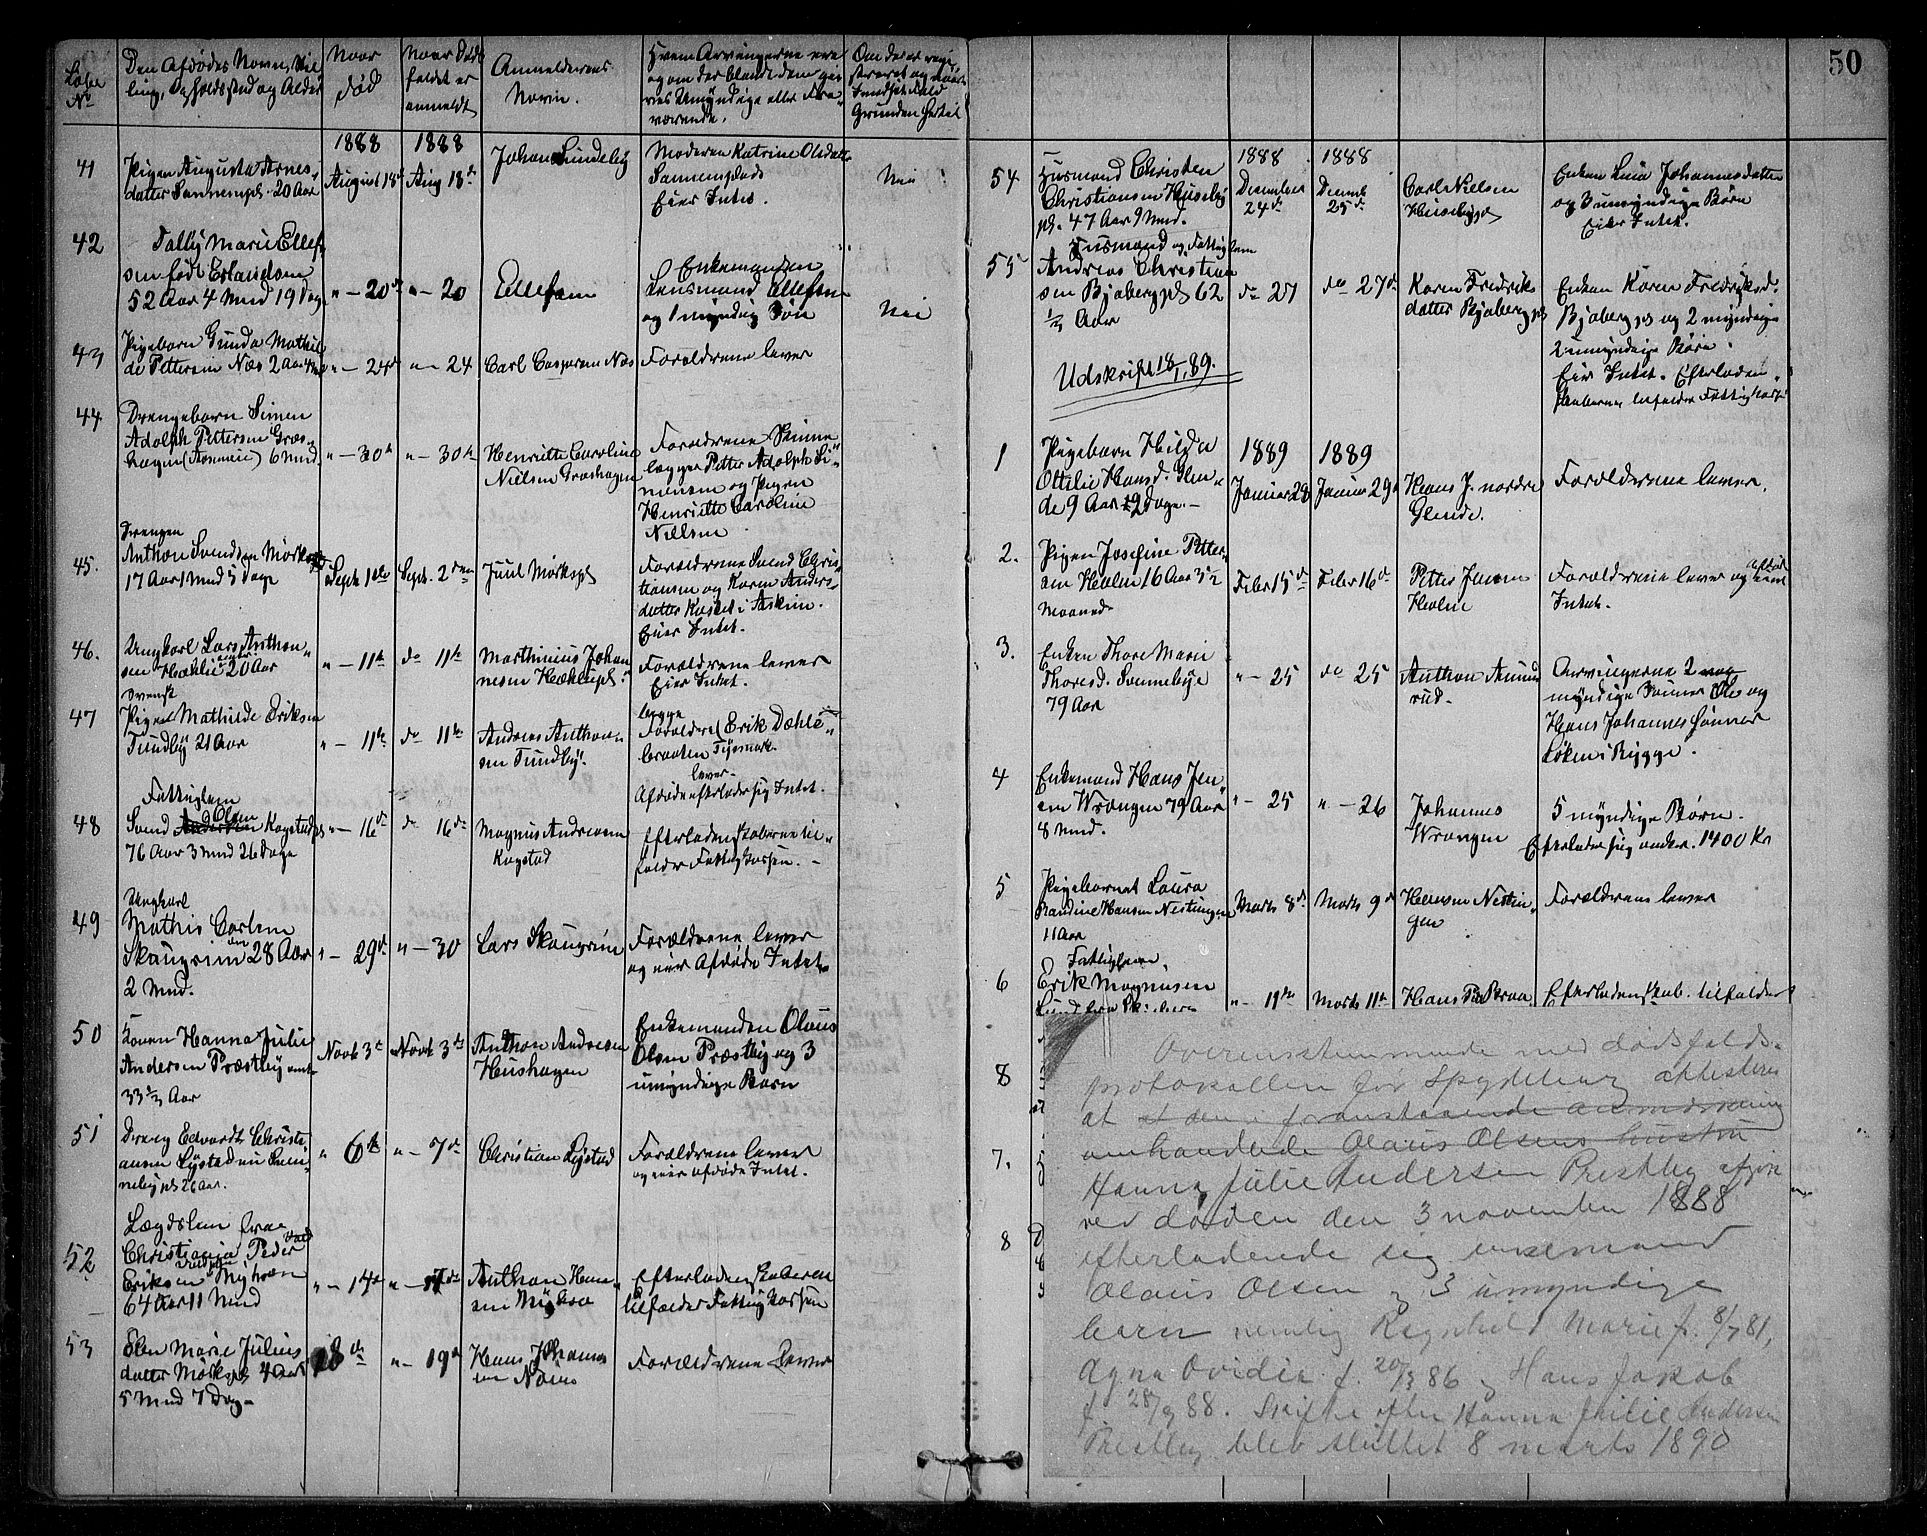 50
Løbe No
Den Afdødes Navn, Stilling, Opholdssted og Alder
Naar død
Naar Dødsfaldet er anmeldt
Anmelderens Navn.
Hvem Arvingerne ere og om der blandt dem gives Umyndige eller Fraværende.
1888
1888
41
Pigen Augusta Arnes-
datter 20 Aar
August 18de
Aug 18de
Johan Lundeby
Moderen Katrine Olsdatter
Eier Intet.
Nei
42
Marie Ellef-
sen født Erlandsen
52 Aar 4 Mnd 19 Dag
" - 20de
" - 20
Ellefsen
Enkemanden
Lensmand Ellefsen
og 1 myndig Søn
Nei
43
Pigebarn Gunda Mathil
de Pettersen Næs 2 Aar
" - 24de
" - 24
Carl Casparsen Næs
Forældrene lever
44
Drengebarn Simen
Adolph Pettersen Græs-
hagen 6 Mnd.
" - 30te
" - 30te
Henriette Caroline
Nielsen Græshagen
Forældrene
Petter Adolph Si-
mensen og Pigen
Henriette Caroline
Nielsen
45.
Drengen
Anthon Svendsen
17 Aar 1 Mnd 5 Dage
Septb 1ste
Septb. 2den
Juul Mørkspl
Forældrene Svend Chris-
tiansen og Karen Anders-
datter i Askim.
Eier Intet.
46.
Ungkarl Lars Anthon-
sen 20 Aar
" - 11te
do 11te
Marthinius Johan
nesen
Forældrene lever
Eier Intet.
47
svensk
Pigen Mathilde Eriksen
Tundby 21 Aar
" - 11te
do 11te
Andreas Anthon-
sen Tundby.
begge
Forældre Erik Dæhle-
braaten
lever.
Afdøde efterlader sig Intet.
48
Fattiglem
Olsen
Svend Kogstadpl
76 Aar 3 Mnd 26 Dage
" - 16de
do 16de
Magnus Andresen
Kogstad
Efterladenskaberne til-
falder Fattigkassen. -
49
Ungkarl
Mathis Carlsen
Skaugrim 28 Aar
2 Mnd.
" - 29de
" - 30
Lars Skaugrim
Forældrene lever
og eier Afdøde Intet
50
Konen Hanna Julie
Andersen Præstby
33 1/2 Aar
Novb 3de
Novb 3de
Anthon Andresen
Enkemanden Olaus
Olsen Præstby og 3
umyndige Børn
51
Dreng Edvardt Christi
ansen Lystad
26 Aar.
" 6te
" - 7de
Christian Lystad
Forældrene lever
og eier afdøde Intet.
52
Lægdslem fra
Christiania Peder
Eriksen
64 Aar 11 Mnd
" - 14de
" - 17de
Anthon Han-
sen
Efterladenskaberne
tilfalder Fattigkassen
53
Elen Marie Julius
datter Mørkspl 4 Aar
5 Mnd 7 Dag
18de
" - 19de
Hans Johannes
sen Næs
Forældrene lever
54
Husmand Christen
Christiansen Huseby
pl. 47 Aar 9 Mnd.
1888
December
24de
1888
Decemb
25de
Carl Nielsen
Husebypl
Enken Lina Johannesdatter
og 3 umyndige Børn
Eier Intet.
55
Husmand og Fattiglem
Andreas Christian
sen Bjabergpl 62
1/2 Aar
do 27
do 27de
Karen Fredriks
datter Bjabergpl
Enken Karen Fredriksd.
Bjabergpl og 2 myndige
2 umyndige Børn.
Eier Intet. Efterladen-
skaberne tilfalder Fattigkassen
Udskrift 18/1.89.
1
Pigebarn Hilda
Ottilie Hansd. Glen-
de 9 Aar 12 Dage. -
1889
Januar 28
1889
Januar 29
Hans J. nordre
Glende.
Forældrene lever.
2.
Pigen Josefine Petter-
sen Holm 16 Aar 3 1/2
Maaned
Febr 15de
Febr 16de
Petter Jensen
Holm
Forældrene lever og
Intet.
3.
Enken Thore Marie
Thoresd. Sonnebye
79 Aar
" - 25
do 25
Anthon Amund
rud.
Arvingerne 2
myndige Sønner Ole og
Hans Johannes Sønner
Løken i Rygge.
4
Enkemand Hans Jen-
sen Wrangen 79 Aar
8 Mnd.
" - 25
" - 26
Johannes
Wrangen
5 myndige Børn.
Efterlader sig omkr. 1400 Kr
5
Pigebarnet Laura
Randine Hansen Nestingen
11 Aar
Marts 8de
Marts 9de
Hansen Nestin-
gen
Forældrene lever
6
Fattiglem.
Erik Magnusen
" - 11te
Marts 11te
Hans P. Braa
Efterladenskab. tilfalder
8
7.
8
Overensstemmende med dødsfalds-
protokollen for Spydeberg attesteres
at at den i foranstaaende anmerkning
omhandlede Olaus Olsens hustru
Hanna Julie Andersen Prestby afgik
ved døden den 3 november 1888
efterladende sig enkemand
Olaus Olsen og 3 umyndige
børn nemlig Ragnhild Marie f. 8/7 81,
Agna Ovidia f. 20/3 86 og Hans Jakob
f. 28/9 88. Skifte efter Hanna Julie Andersen
Prestby blev sluttet 8 marts 1890